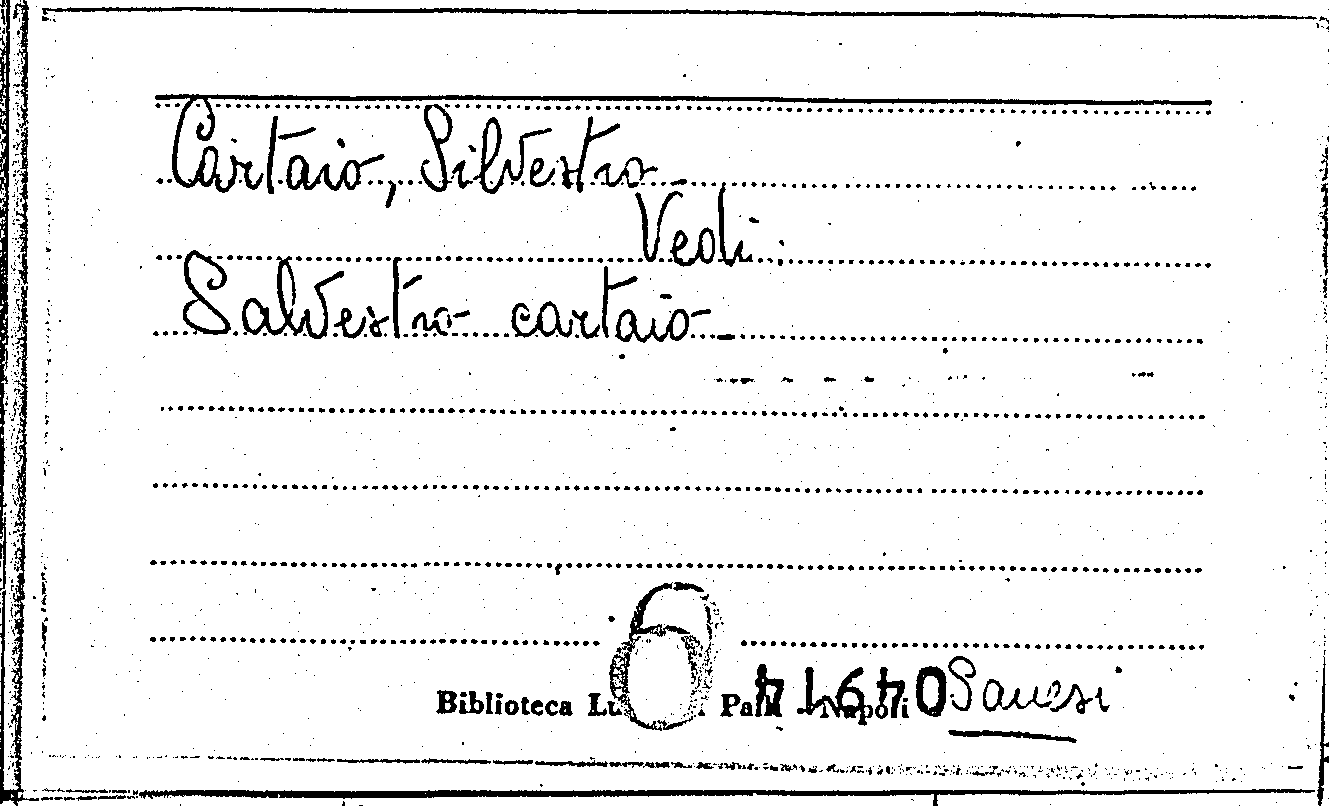 Cartaio, Silvestro -
Vedi:
Salvestro cartaio -
Biblioteca Napoli
Sanesi